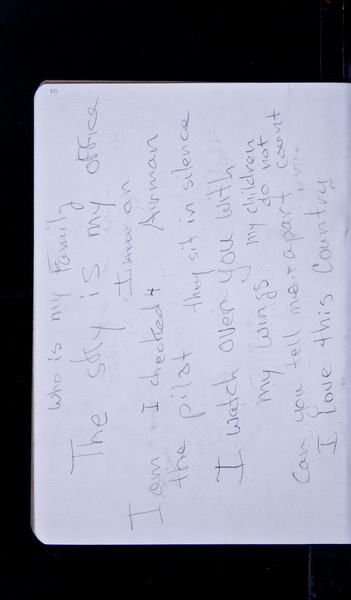 who is my Family
The sky is my office
I am
I checked + Airman
the pilot they sit in silence
I watch over you with
my wings my children
do not
Can you tell me apart count
I love this Country